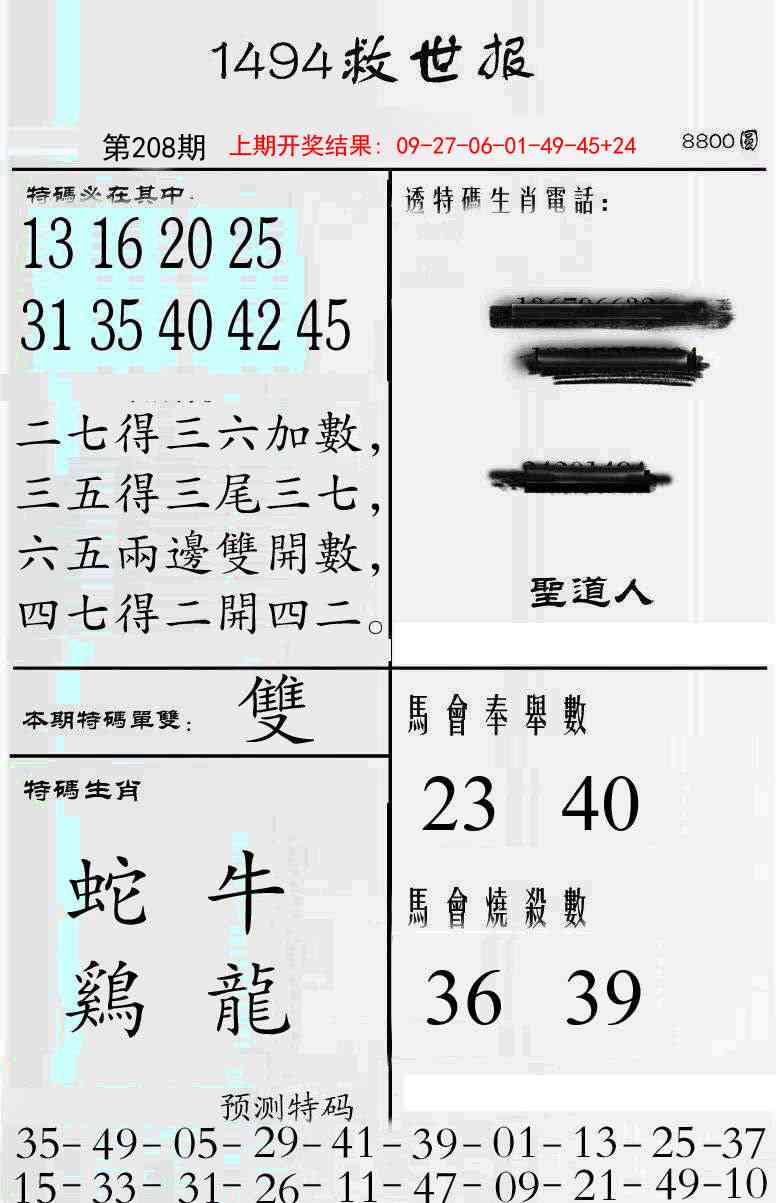 1494救世报
第208期 上期开奖结果：09-27-06-01-49-45+24 8800圓
特碼必在其中：
13 16 20 25
31 35 40 42 45
二七得三六加數，
三五得三尾三七，
六五兩邊雙開數，
四七得二開四二。
透特碼生肖電話：
聖道人
本期特碼單雙： 雙
特碼生肖
蛇 牛
鷄 龍
馬會奉舉數
23 40
馬會燒殺數
36 39
预测特码
35-49-05-29-41-39-01-13-25-37
15-33-31-26-11-47-09-21-49-10